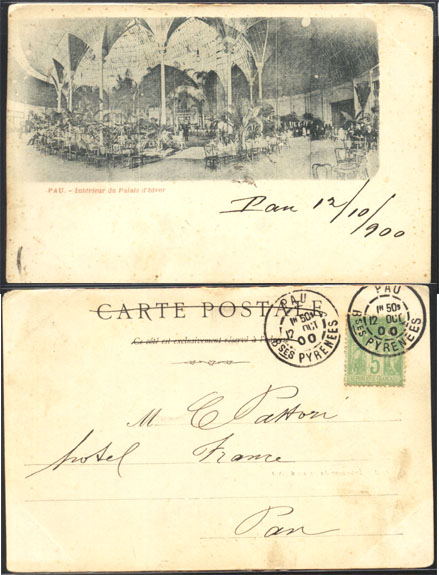 PAU. - Intérieur du Palais d'hiver
Pau 12/10/900
CARTE POSTALE
Ce côté est exclusivement réservé à l'
PAU
1E 50S
12 OCT
00
BSES PYRENEES
PAU
1E 50S
12 OCT
00
BSES PYRENEES
5
M C Pattori
hotel France
Pau